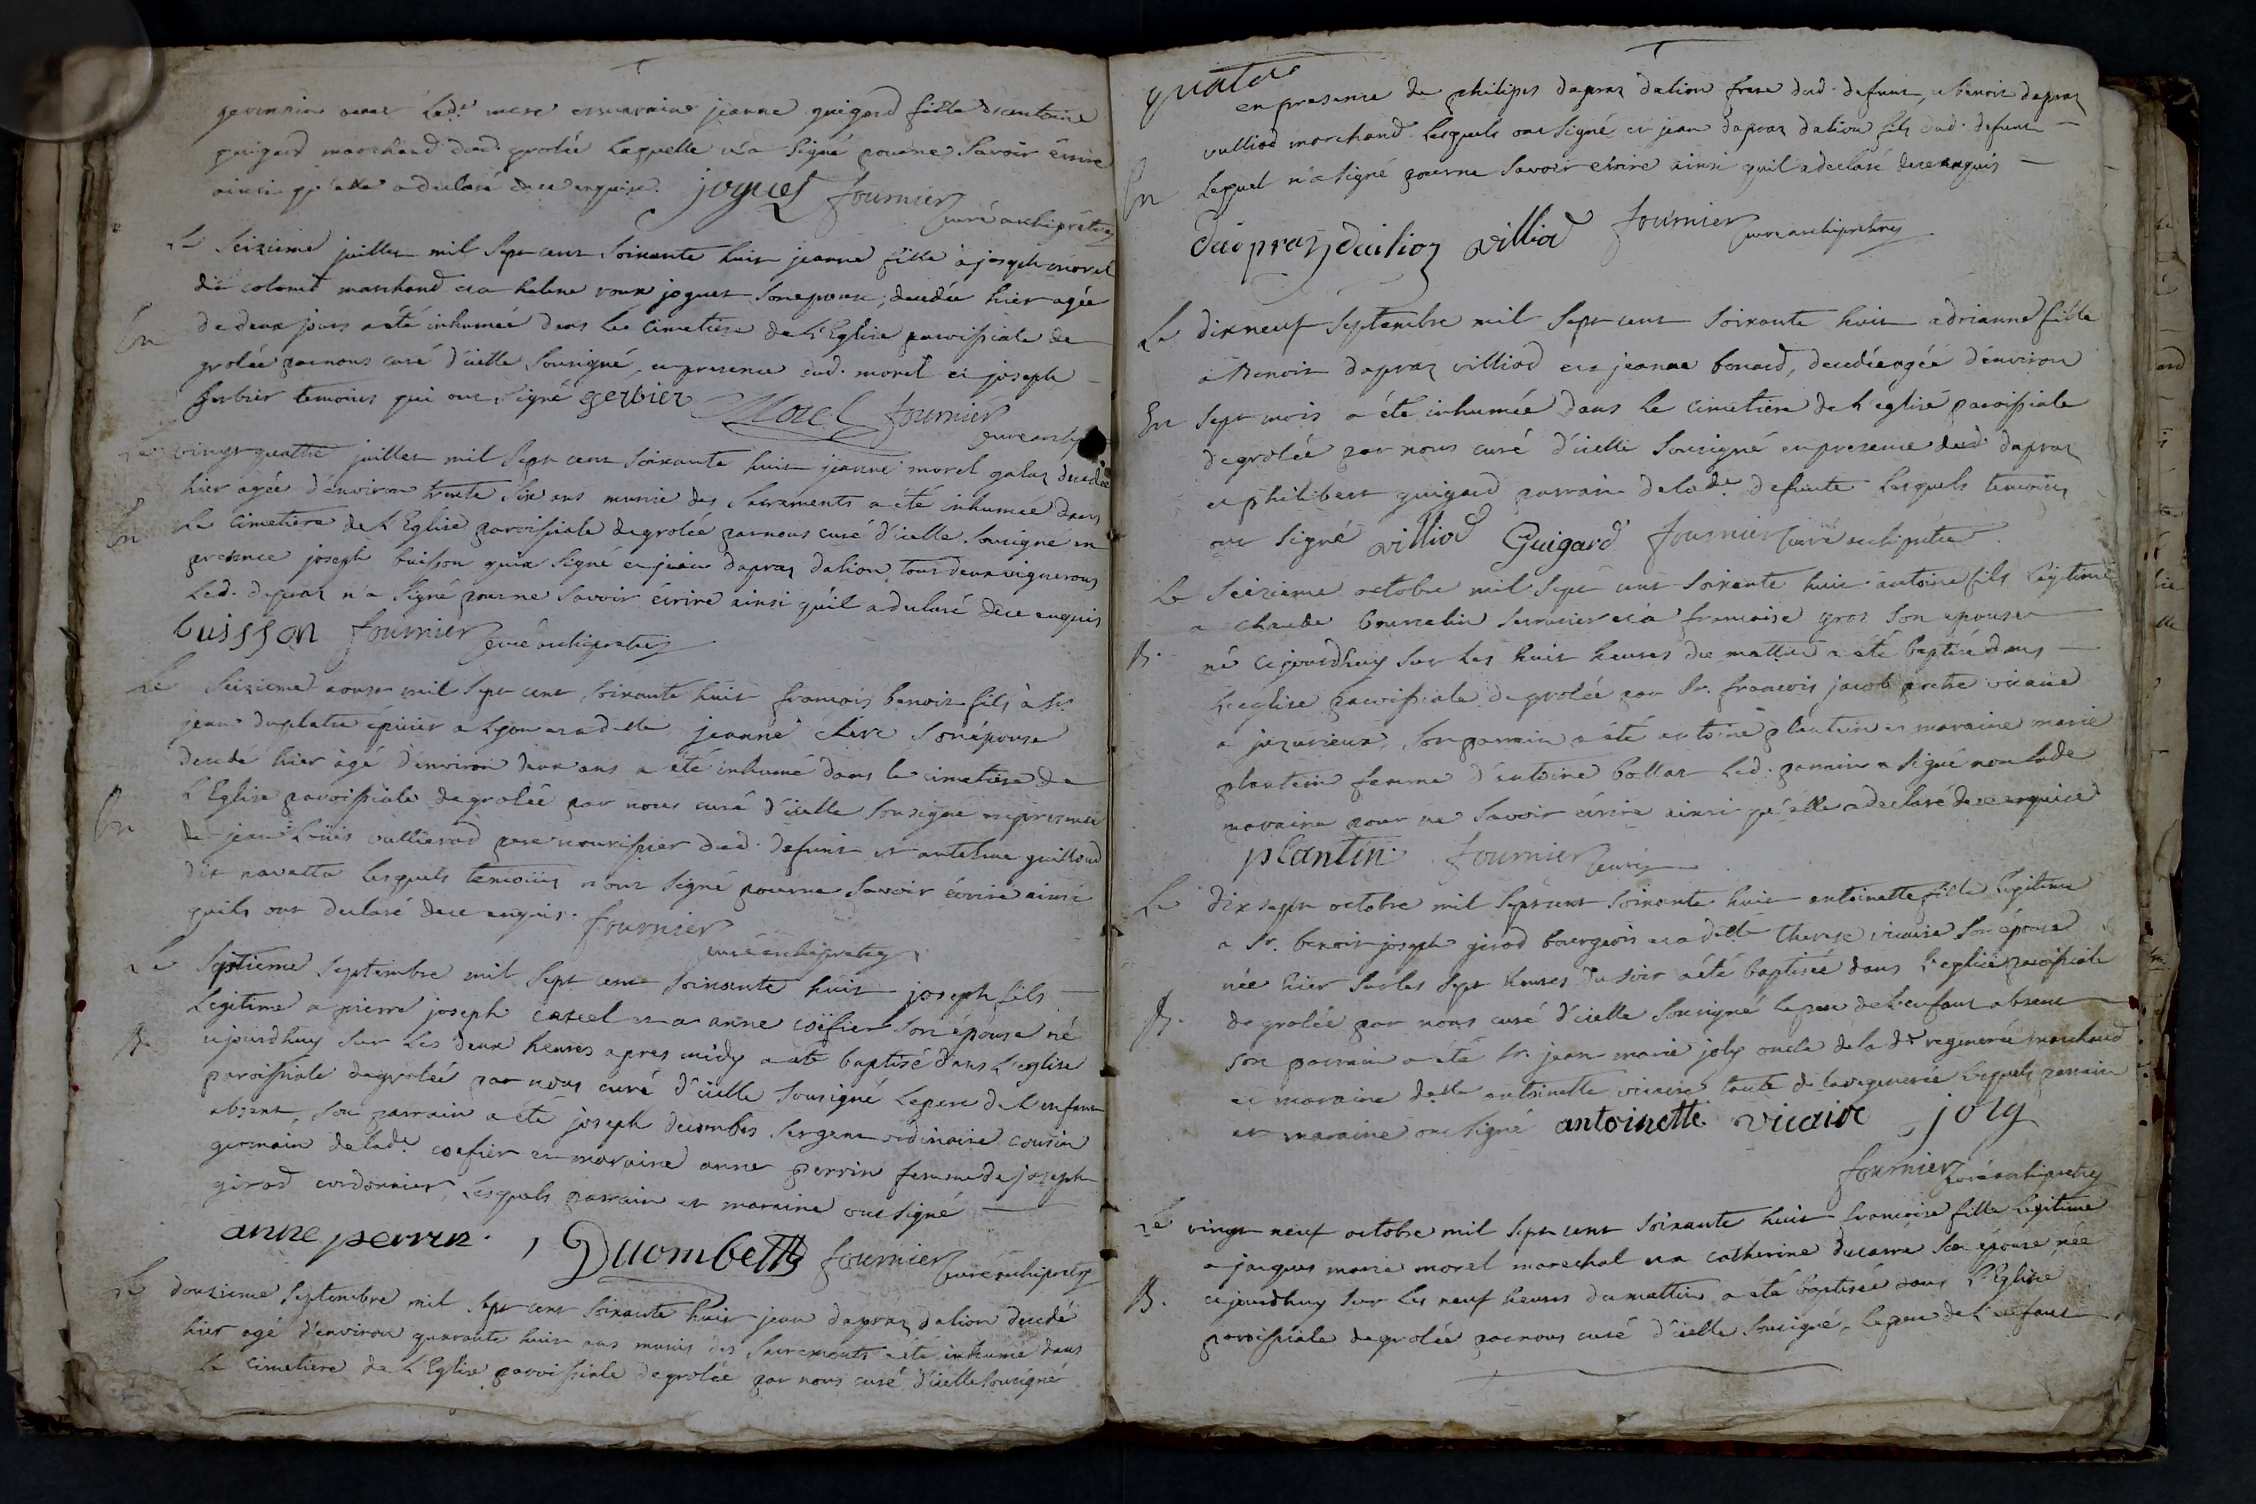 germain avec led.e mere et maraine jeanne guigard fille d'antoine
guigard marchand dud. grolée laquelle n'a signé pour ne savoir écrire
ainsi qu'elle a declaré de ce enquise. joguet fournier
curé archiprêtre
Le seizieme juillet mil sept cent soixante huit jeanne fille à joseph morel
dit colomb marchand et a helene roux joguet son epouse, decedée hier agée
En de deux jours a été inhumée dans le cimetiere de l'Eglise paroissiale de
grolée par nous curé d'icelle sousigné, en presence dud. morel et joseph
gerbier temoins qui ont signé gerbier Morel fournier
curé archip
Le vingt quatre juillet mil sept cent soixante huit jeanne morel galaz decedée
hier agée d'environ trente six ans munie des sacrements a été inhumée dans
En le cimetiere de l'Eglise paroissiale de grolée par nous curé d'icelle sousigné en
presence joseph buisson qui a signé et jean dapraz dalion tous deux vignerons
led. dapraz n'a signé pour ne savoir écrire ainsi qu'il a declaré de ce enquis
buisson fournier curé archiprêtre
Le seizieme aoust mil sept cent soixante huit françois benoit fils à Sr
jean duplatre épicier a Lyon et a delle jeanne clerc son épouse
decedé hier âgé d'environ deux ans a été inhumé dans le cimetiere de
En l'Eglise paroissiale de grolée par nous curé d'icelle sousigné en presence
de jean Loüis vullierod pere nourissier dud. defunt et antelme guilland
dit navatta lesquels temoins n'ont signé pour ne savoir écrire ainsi
qu'ils ont declaré de ce enquis. fournier
curé archiprêtre
Le septieme septembre mil sept cent soixante huit joseph fils
Legitime a pierre joseph carrel et a anne coïfier son épouse né
B. cejourdhuy sur les deux heures apres midy a été baptisé dans l'eglise
paroissiale de grolée par nous curé d'icelle sousigné le pere de l'enfant
absent, son parrain a été joseph decombes sergent ordinaire cousin
germain de lad.e coefier et maraine anne perrin femme de joseph
girod cordonnier, lesquels parrain et maraine ont signé
anne perrin. Ducombe fournier curé archiprêtre
Le douzieme septembre mil sept cent soixante huit jean dapraz dalion decedé
hier agé d'environ quarante huit ans munis des sacrements a été inhumé dans
le cimetiere de l'Eglise paroissiale de grolée par nous curé d'icelle sousigné
quatre
en presence de philipes dapraz dalion frere dud. defunt, et benoit dapraz
vulliod marchand lesquels ont signé et jean dapraz dalion fils dud. defunt
En lequel n'a signé pour ne savoir écrire ainsi qu'il a declaré de ce enquis
dapraz dalion villiod fournier curé archiprêtre
Le dix neuf septembre mil sept cent soixante huit adrianne fille
à Benoit dapraz villiod et a jeanne bonard, decedée agée d'environ
En sept mois a été inhumée dans le cimetiere de l'eglise paroissiale
de grolée par nous curé d'icelle sousigné en presence dud dapraz
et philibert guigard parrain de lad.e defunte lesquels temoins
ont signé villiod Guigard fournier curé archiprêtre
Le seizieme octobre mil sept cent soixante huit antoine fils legitime
a claude serrurier et a francoise gros son epouse
B. né cejourdhuy sur les huit heures du mattin a été baptisé dans
l'eglise paroissiale de grolée par Sr. francois jacob pretre vicaire
a jezurieux, son parrain a été antoine plantin et maraine marie
plantin femme d'antoine bollat led. parrain a signé non lade
maraine pour ne savoir écrire ainsi qu'elle a declaré de ce enquise
plantin. fournier curé
Le dix sept octobre mil sept cent soixante huit antoinette fille legitime
a Sr. benoit joseph girod bourgeois et a delle therese vicaire son épouse
née hier sur les sept heures du soir a été baptisée dans l'eglise paroissiale
B. de grolée par nous curé d'icelle sousigné le pere de l'enfant absent
son parrain a été Sr. jean marie joly oncle de la de regenerée marchand
et maraine delle antoinette vicaire tante de la regenerée lesquels parrain
et maraine ont signé antoinette vicaire joly
fournier curé archiprêtre
Le vingt neuf octobre mil sept cent soixante huit francoise fille legitime
a jacques marie morel marechal et a catherine ducarre son épouse née
B. cejourdhuy sur les neuf heures du mattin a été baptisée dans l'Eglise
paroissiale de grolée par nous curé d'icelle sousigné, le pere de l'enfant